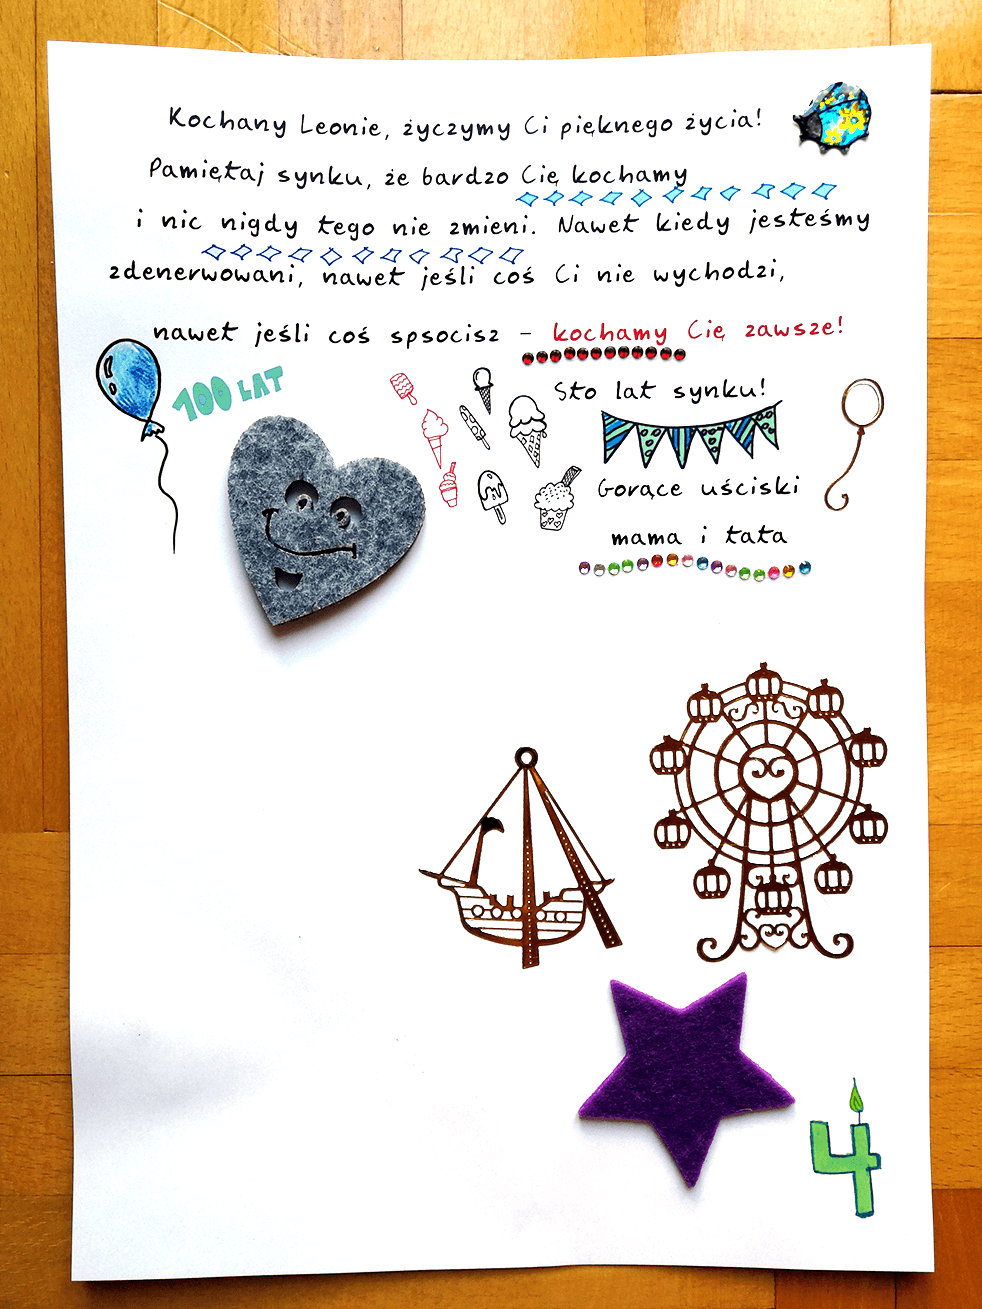 Kochany Leonie, życzymy Ci pięknego życia!
Pamiętaj synku, że bardzo Cię kochamy
i nic nigdy tego nie zmieni. Nawet kiedy jesteśmy
zdenerwowani, nawet jeśli coś Ci nie wychodzi,
nawet jeśli coś spsocisz – kochamy Cię zawsze!
100 LAT
Sto lat synku!
Gorące uściski
mama i tata
4